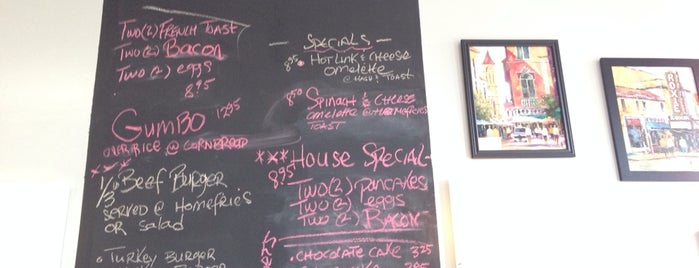 TWO(2) FRENCH TOAST
TWO(2) BACON
TWO (2) eggs
8.95
GUMBO 12.95
OVER RICE @ CORNBREAD
***
1/3 lb BEEF BURGER
SERVED @ HOMEFRIE'S
OR SALAD
• TURKEY BURGER
— SPECIALS —
8.95 • HOT LINK & CHEESE
OMELETTE
TOAST
8.50 SPINACH & CHEESE
OMELETTE @ HOMEFRIES
TOAST
*** HOUSE SPECIAL
8.95 TWO(2) PANCAKES
TWO (2) EGGS
TWO (2) BACON
• CHOCOLATE CAKE 3.25